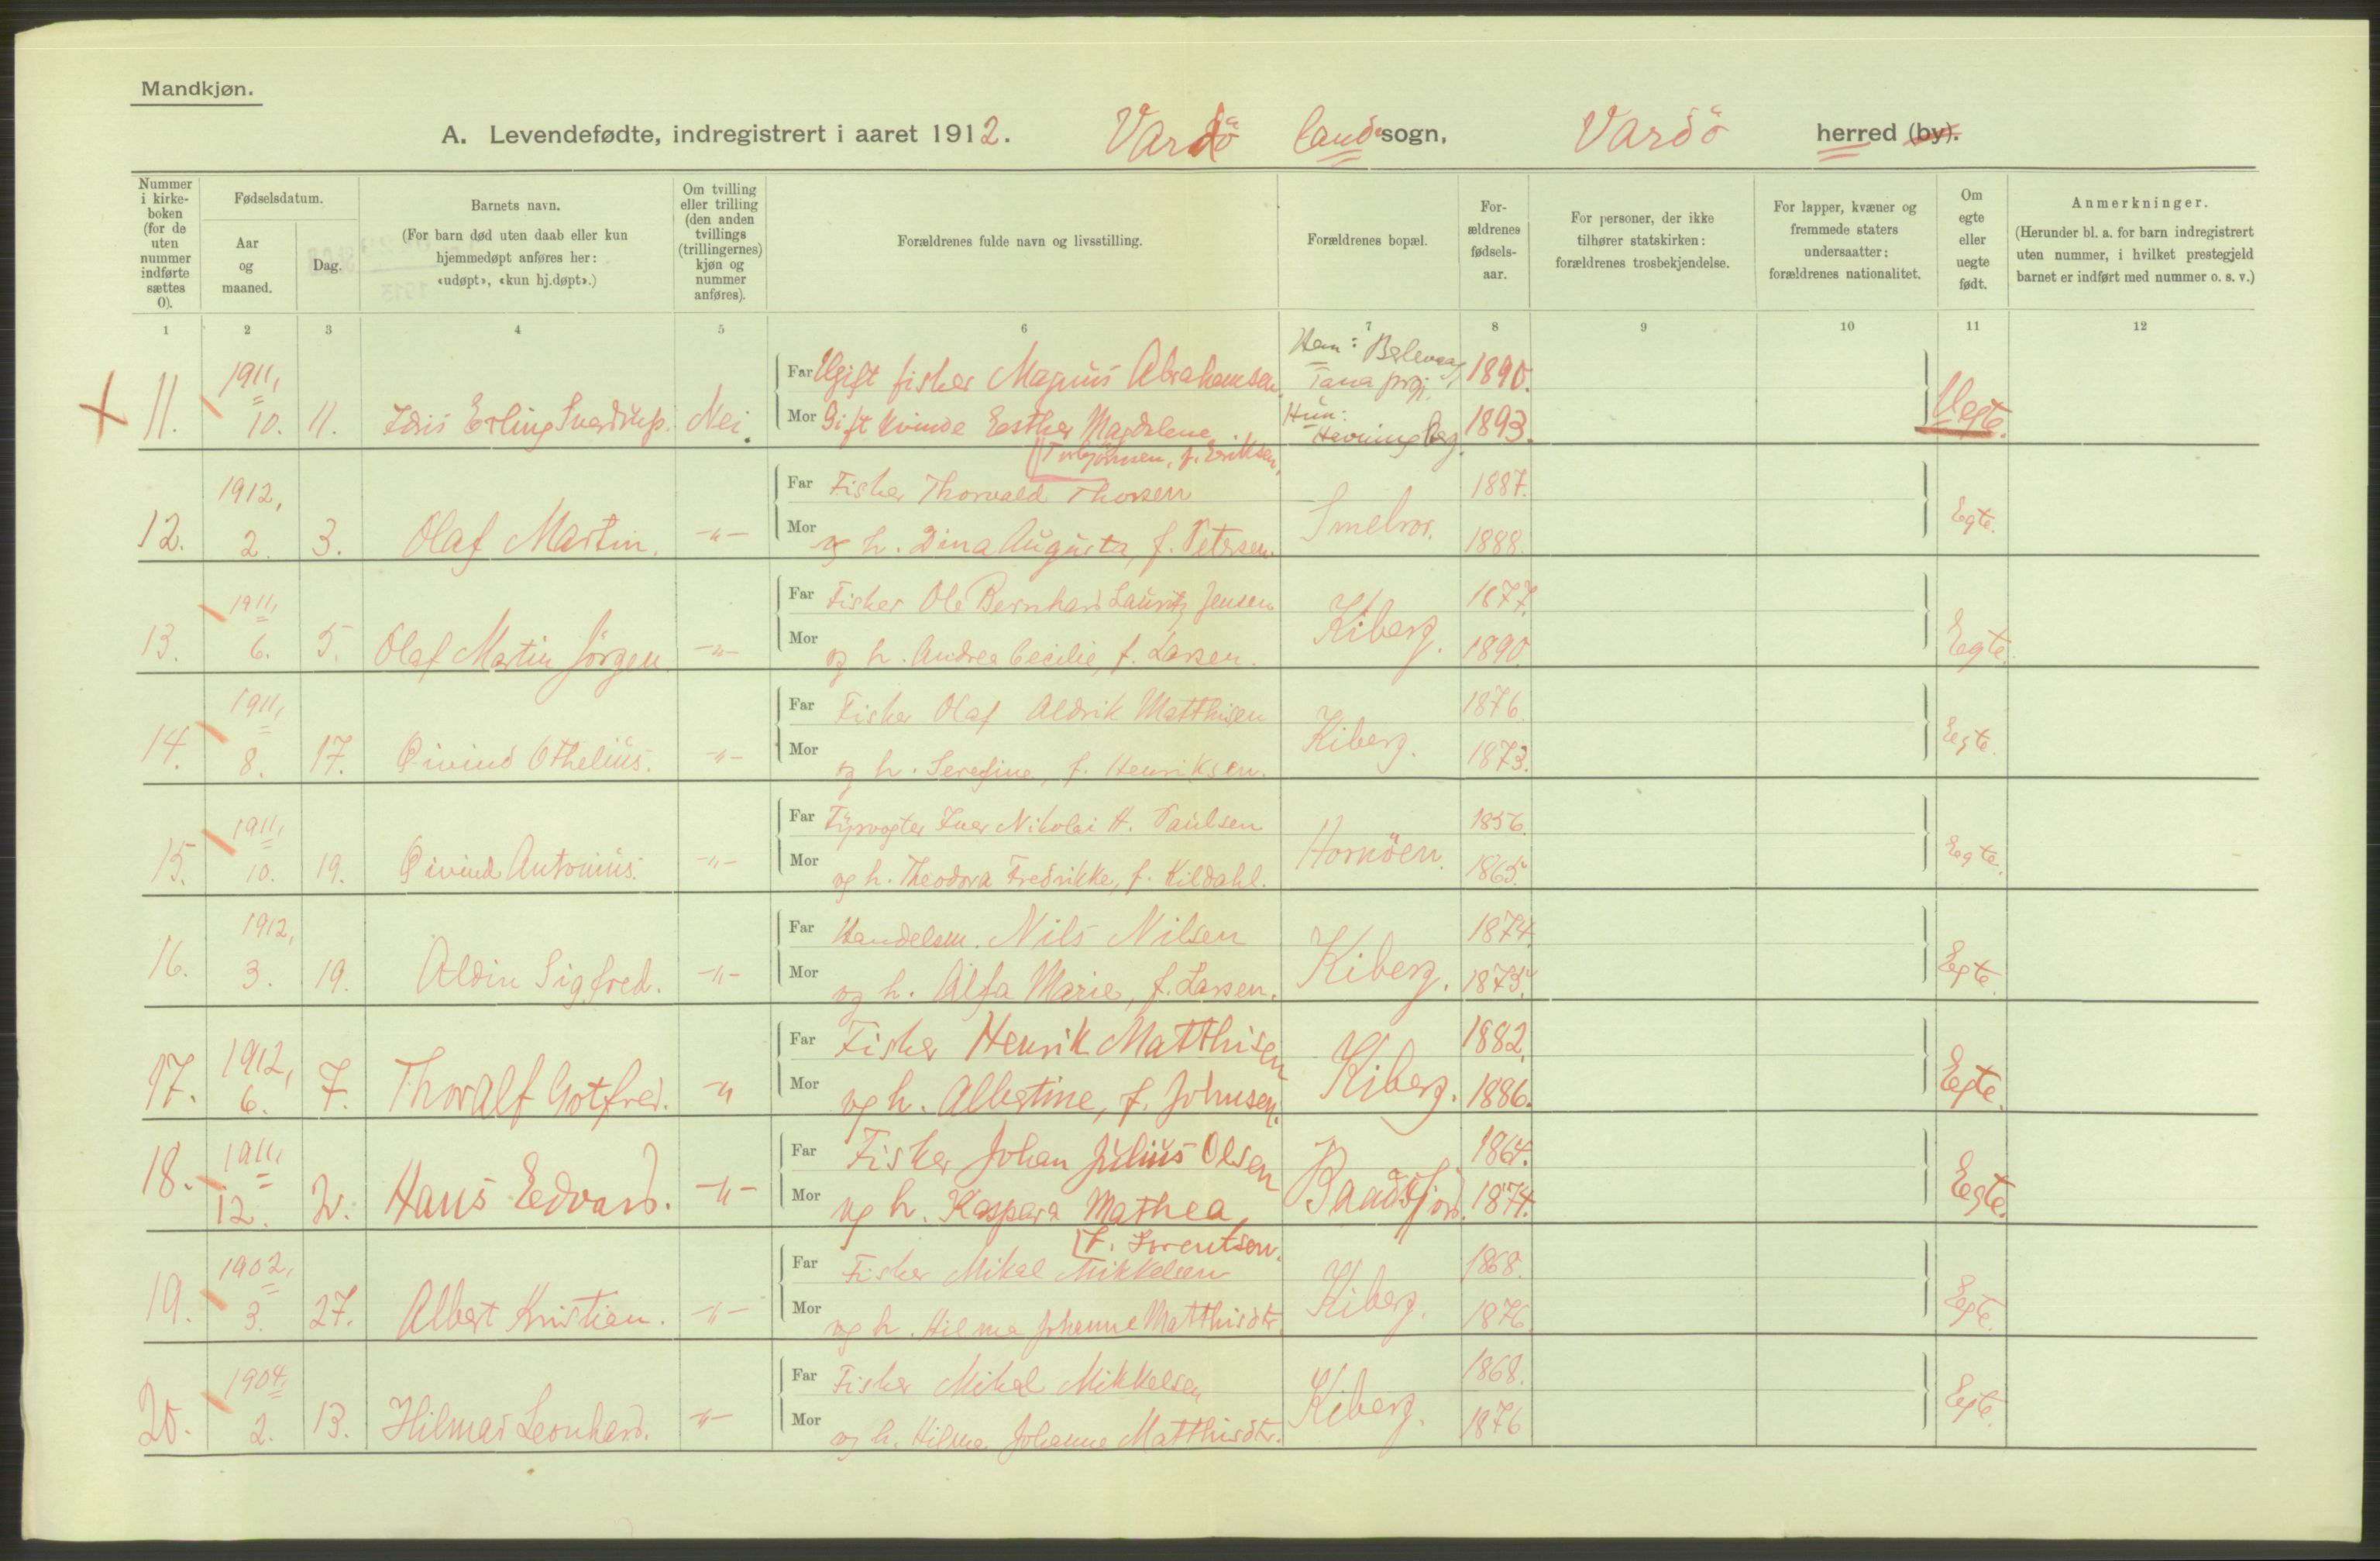 Mandkjøn.
A. Levendefødte, indregistrert i aaret 1912. Vardö landsogn, Vardö herred (by).
Nummer i kirke-boken (for de uten nummer indførte sættes 0).
Fødselsdatum.
Aar og maaned.
Dag.
Barnets navn.
(For barn død uten daab eller kun hjemmedøpt anføres her: «udøpt», «kun hj.døpt».)
Om tvilling eller trilling (den anden tvillings (trillingernes) kjøn og nummer anføres).
Forældrenes fulde navn og livsstilling.
Forældrenes bopæl.
For-ældrenes fødsels-aar.
For personer, der ikke tilhører statskirken: forældrenes trosbekjendelse.
For lapper, kvæner og fremmede staters undersaatter: forældrenes nationalitet.
Om egte eller uegte født.
Anmerkninger.
(Herunder bl. a. for barn indregistrert uten nummer, i hvilket prestegjeld barnet er indført med nummer o. s. v.)
1 2 3 4 5 6 7 8 9 10 11 12
11. 1911, 10. 11. Idris Erling Sverdrup. Nei.
Far Ugift fisker Magnus Abrahamsen Han: Berlevaag, Tana prgj. 1890.
Mor Gift kvinde Esther Magdalene Torbjörnsen, f. Eriksen, Hun: Havningberg. 1893. Uegte.
12. 1912, 2. 3. Olaf Martin. -"-
Far Fisker Thorvald Thorsen Smelror. 1887.
Mor og h. Dina Augusta, f. Petersen. 1888. Egte.
13. 1911, 6. 5. Olaf Martin Jörgen -"-
Far Fisker Ole Bernhard Lauritz Jensen Kiberg. 1877.
Mor og h. Andrea Cecilie, f. Larsen. 1890. Egte.
14. 1911, 8. 17. Øivind Othelius. -"-
Far Fisker Olaf Aldrik Matthisen Kiberg. 1876.
Mor og h. Serefine, f. Henriksen. 1873. Egte.
15. 1911, 10. 19. Øivind Antonius. -"-
Far Fyrvogter Iver Nikolai H. Paulsen Hornöen. 1856.
Mor og h. Theodora Fredrikke, f. Kildahl. 1865. Egte.
16. 1912, 3. 19. Aldin Sigfred. -"-
Far Handelsm. Nils Nilsen Kiberg. 1874.
Mor og h. Alfa Marie, f. Larsen. 1875. Egte.
17. 1912, 6. 7. Thoralf Gotfred. -"
Far Fisker Henrik Matthisen Kiberg. 1882.
Mor og h. Albertine, f. Johnsen. 1886. Egte.
18. 1911, 12. 2. Hans Edvard. -"-
Far Fisker Johan Julius Olsen Baadsfjord. 1864.
Mor og h. Kaspara Mathea, f. Lorentsen. 1874. Egte.
19. 1902, 3. 27. Albert Kristian. -"-
Far Fisker Mikal Mikkelsen Kiberg. 1868.
Mor og h. Hilma Johanne Matthisdtr. 1876. Egte.
20. 1904, 2. 13. Hilmar Leonhard. -"-
Far Fisker Mikal Mikkelsen Kiberg. 1868.
Mor og h. Hilma Johanne Matthisdtr. 1876 Egte.